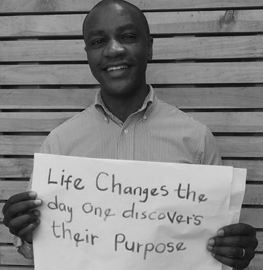 Life Changes the
day one discovers
their Purpose